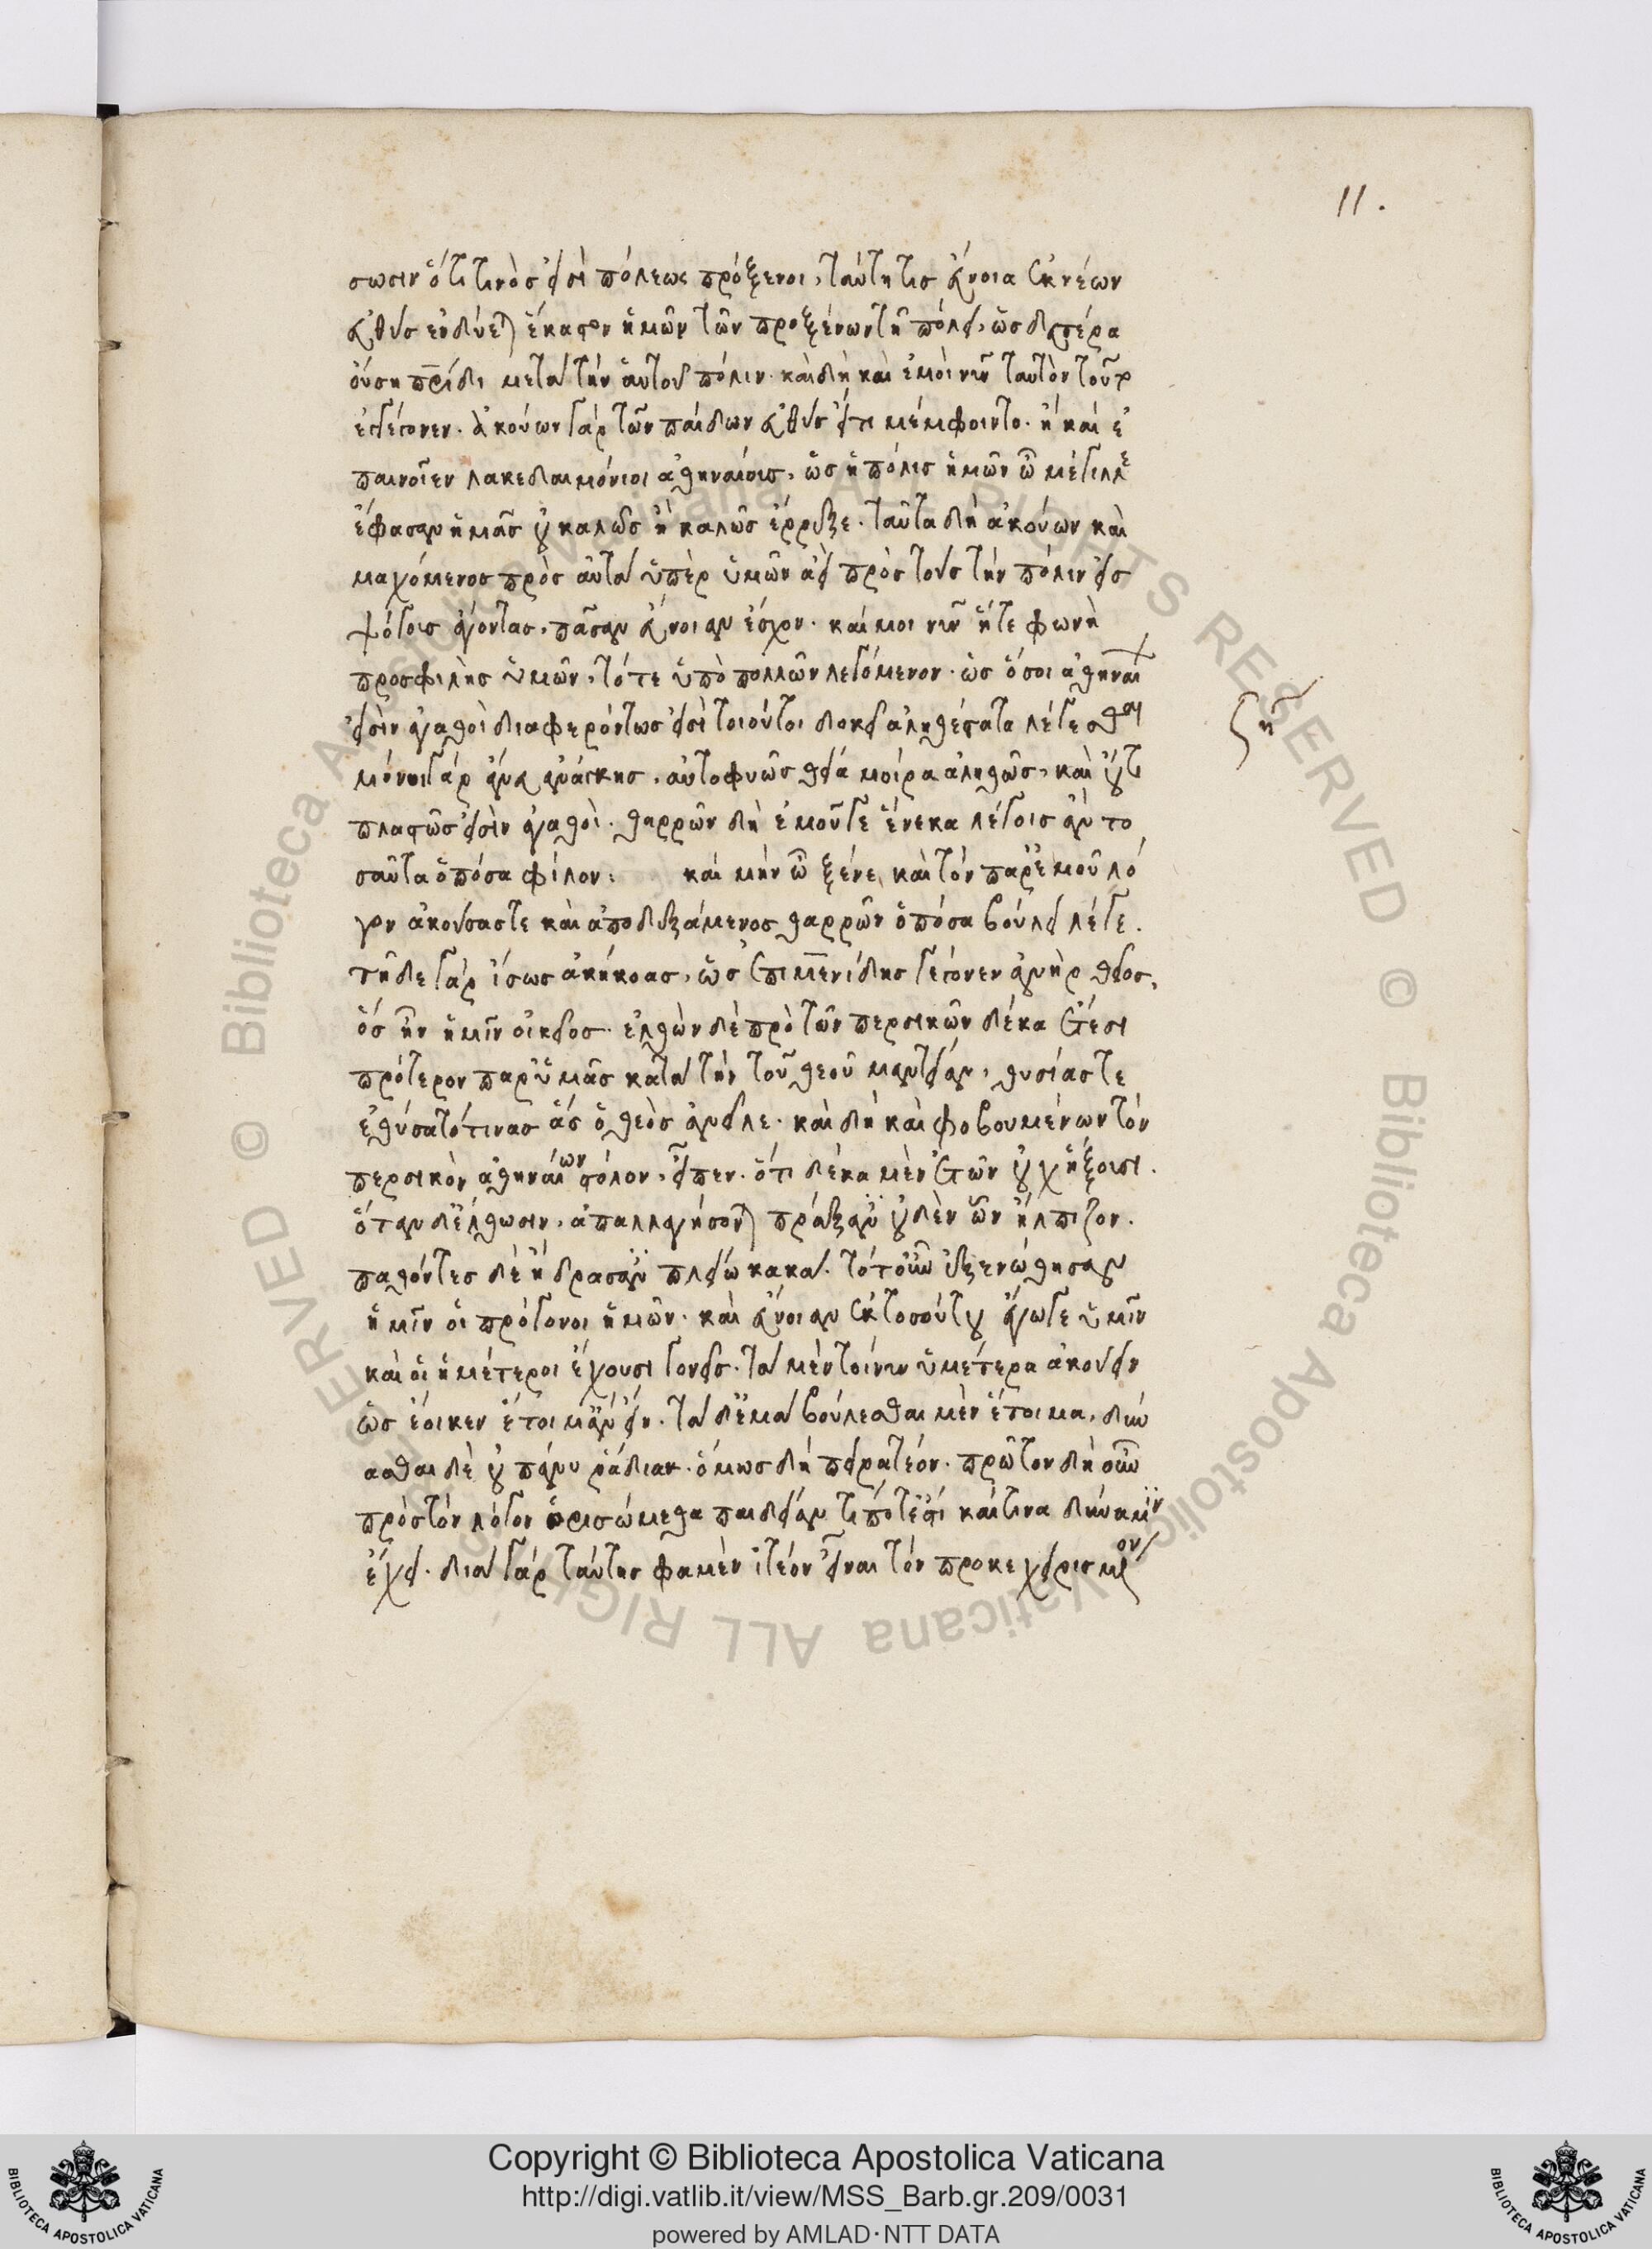 11.
σωσιν ὅτι τινὸς εἰσὶ πόλεως πρόξενοι, ταύτη τις εὔνοια ἐκ νέων
εὐθὺς ἐνδύεται ἕκαστον ἡμῶν τῶν προξένων τῆ πόλει, ὡς δευτέρα
οὔση πρίδι μετὰ τὴν αὐτοῦ πόλιν. καὶ δὴ καὶ ἐμοὶ νῦν ταυτὸν τοῦτ
ἐγγέγονεν. ἀκούων γὰρ τῶν παίδων εὐθὺς εἴ τι μέμφοιντο. ἢ καὶ ἐ
παινοῖεν λακεδαιμόνιοι ἀθηναίοις, ὡς ἡ πόλις ἡμῶν ὦ μέγιλλε
ἔφασαν ἡμᾶς οὐ καλῶς ἢ καλῶς ἔρρεξε. ταῦτα δὴ ἀκούων καὶ
μαχόμενος πρὸς αὐτὰ ὑπὲρ ὑμῶν ἀεὶ πρὸς τοὺς τὴν πόλιν εἰς
ψόγους ἄγοντας, πᾶσαν εὔνοιαν ἔσχον. καί μοι νῦν ἥ τε φωνὴ
προσφιλὴς ὑμῶν, τό τε ὑπὸ πολλῶν λεγόμενον. ὡς ὅσοι ἀθηναί
εἰσὶν ἀγαθοὶ διαφερόντως εἰσὶ τοιοῦτοι δοκεῖ ἀληθέστατα λέγεσθαι
μόνοι γὰρ ἄνευ ἀνάγκης. αὐτοφυῶς θεία μοίρα ἀληθῶς, καὶ οὔτι
πλαστῶς εἰσὶν ἀγαθοί. θαρρῶν δὴ ἐμοῦγε ἕνεκα λέγοις ἂν το
σαῦτα ὁπόσα φίλον: καὶ μὴν ὦ ξένε καὶ τὸν παρ' ἐμοῦ λό
γον ἀκούσας τε καὶ ἀποδεξάμενος θαρρῶν ὁπόσα βούλει λέγε.
τῆδε γὰρ ἴσως ἀκήκοας, ὡς ἐπιμενίδης γέγονεν ἀνὴρ θεῖος,
ὃς ἦν ἡμῖν οἰκεῖος. ἐλθὼν δὲ πρὸ τῶν περσικῶν δέκα ἔτεσι
πρότερον παρ' ὑμᾶς κατὰ τὴν τοῦ θεοῦ μαντείαν, θυσίας τε
ἐθύσατό τινας ἃς ὁ θεὸς ἀνεῖλε. καὶ δὴ καὶ φοβουμένων τὸν
περσικὸν ἀθηναίων στόλον, εἶπεν. ὅτι δέκα μὲν ἐτῶν οὐχ ἥξουσι.
ὅταν δ' ἔλθωσιν, ἀπαλλαγήσονται πράξαντες οὐδὲν ὧν ἤλπιζον.
παθόντες δὲ ἢ δράσαντες πλείω κακά. τότ' οὖν ἐξενώθησαν
ἡμῖν οἱ πρόγονοι ἡμῶν. καὶ εὔνοιαν ἐκ τοσούτου ἔγωγε ὑμῖν
καὶ οἱ ἡμέτεροι ἔχουσι γονεῖς. τὰ μὲν τοίνυν ὑμέτερα ἀκούειν
ὡς ἔοικεν ἕτοιμ' ἂν εἴη. τὰ δ' ἐμὰ βούλεσθαι μὲν ἕτοιμα, δύνα
σθαι δὲ οὐ πάνυ ῥάδιαν. ὅμως δὴ πειρατέον. πρῶτον δὴ οὖν
πρὸς τὸν λόγον ὁρισώμεθα παιδείαν τί ποτ' ἐστί καὶ τίνα δύναμιν
ἔχει. διὰ γὰρ ταύτης φαμὲν ἰτέον εἶναι τὸν προκεχειρισμένον
ζη
Copyright © Biblioteca Apostolica Vaticana
http://digi.vatlib.it/view/MSS_Barb.gr.209/0031
powered by AMLAD·NTT DATA
BIBLIOTECA APOSTOLICA VATICANA
BIBLIOTECA APOSTOLICA VATICANA
© Biblioteca Apostolica Vaticana ALL RIGHTS RESERVED © Biblioteca Apostolica Vaticana ALL RIGHTS RESERVED